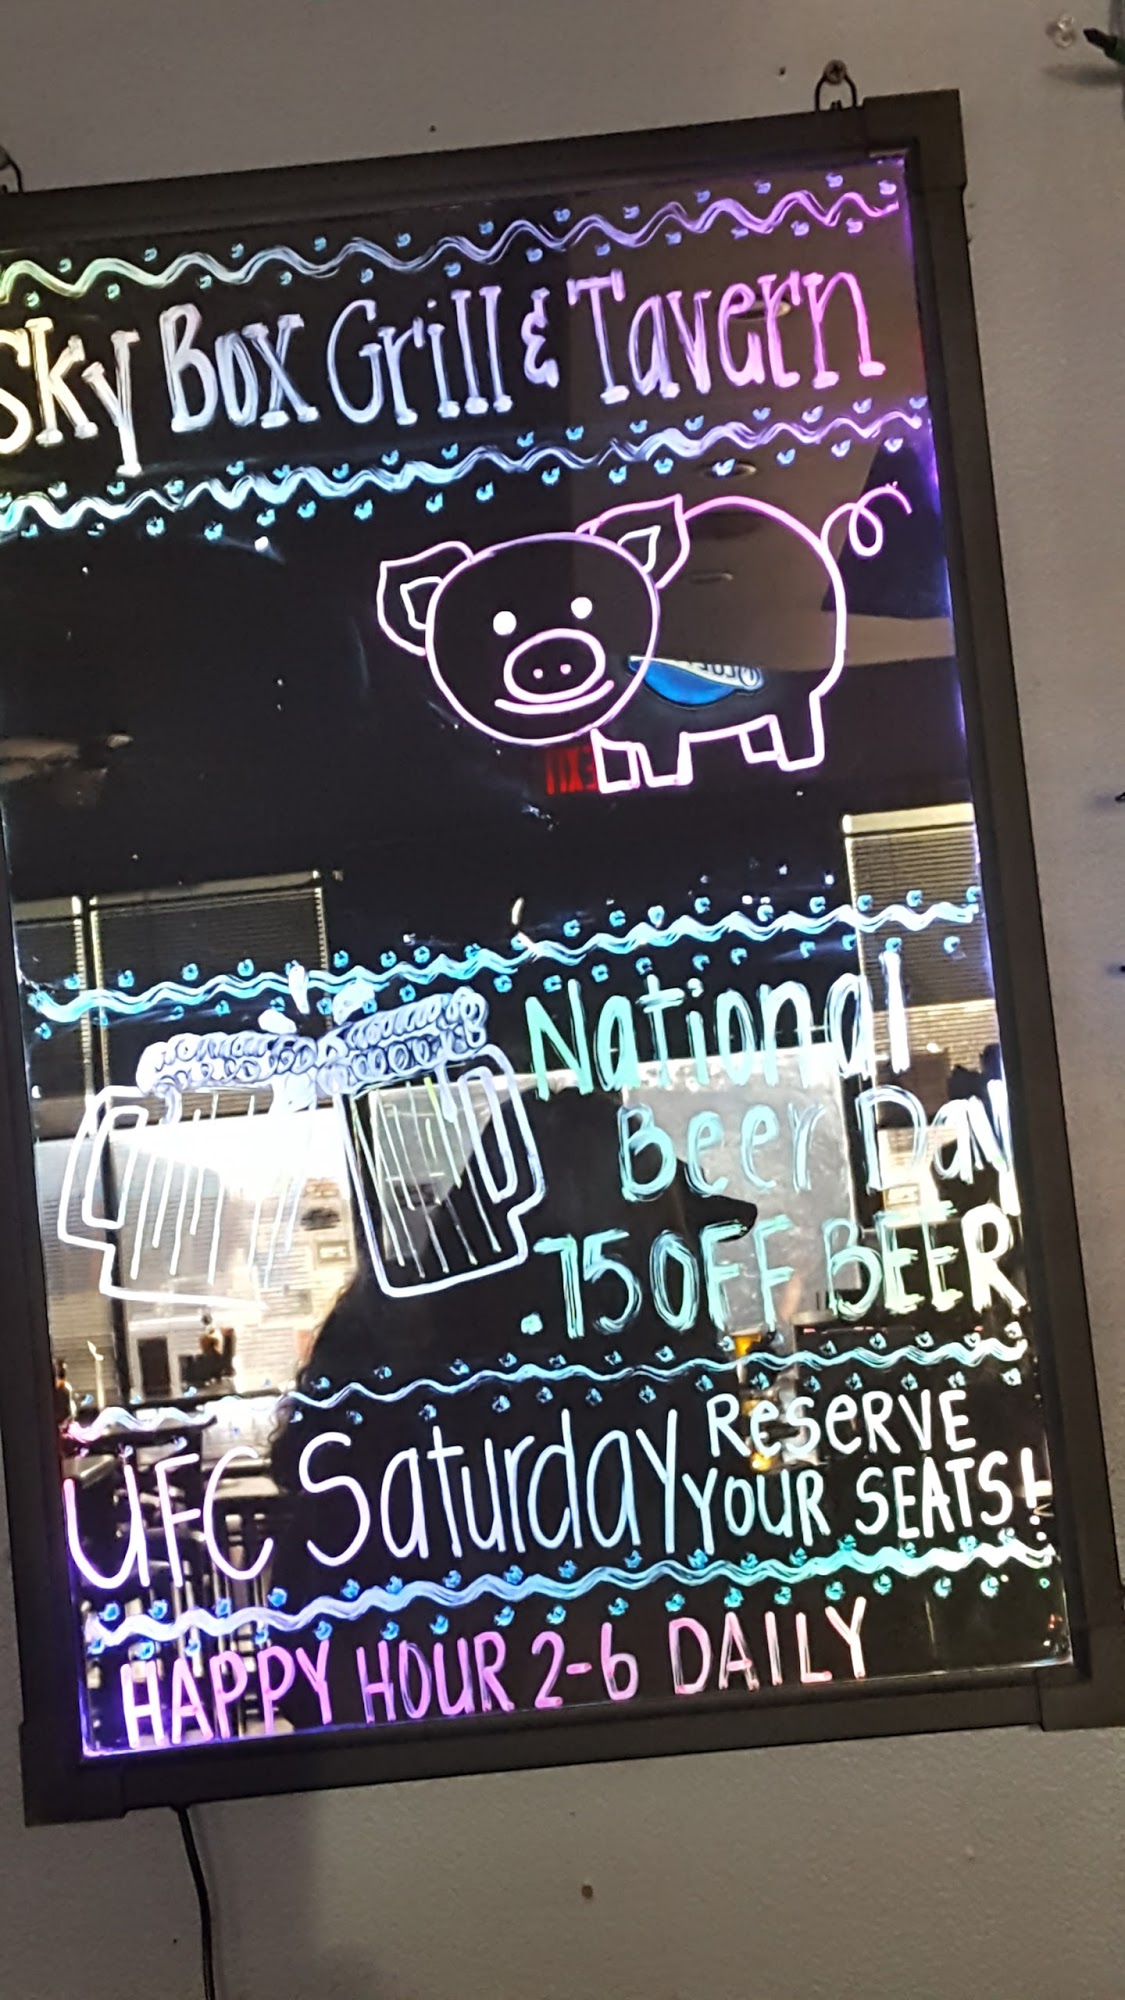 Sky Box Grill & Tavern
National
Beer Day
.75 OFF BEER
UFC Saturday RESERVE
YOUR SEATS!
HAPPY HOUR 2-6 DAILY
EXIT